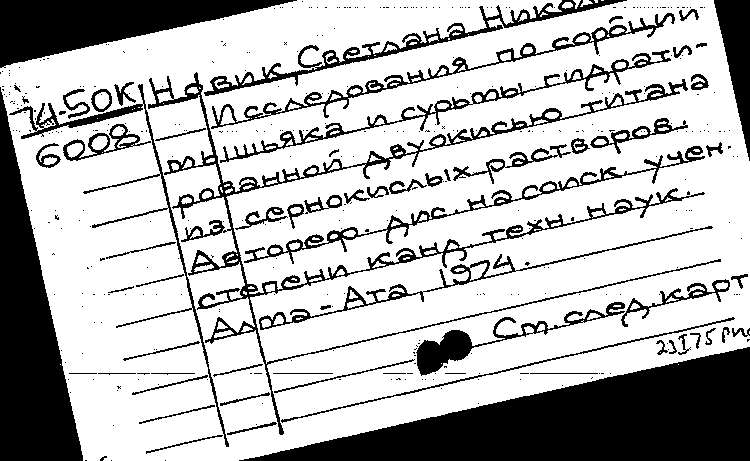 74-50К Светлана
6008 Исследования по сорбции
мышьяка и сурьмы гидрати-
рованной двуокисью титана
из сернокислых растворов.
Автореф. дис. на соиск. учен.
степени канд. техн. наук.
Алма-Ата, 1974.
См. след. карт